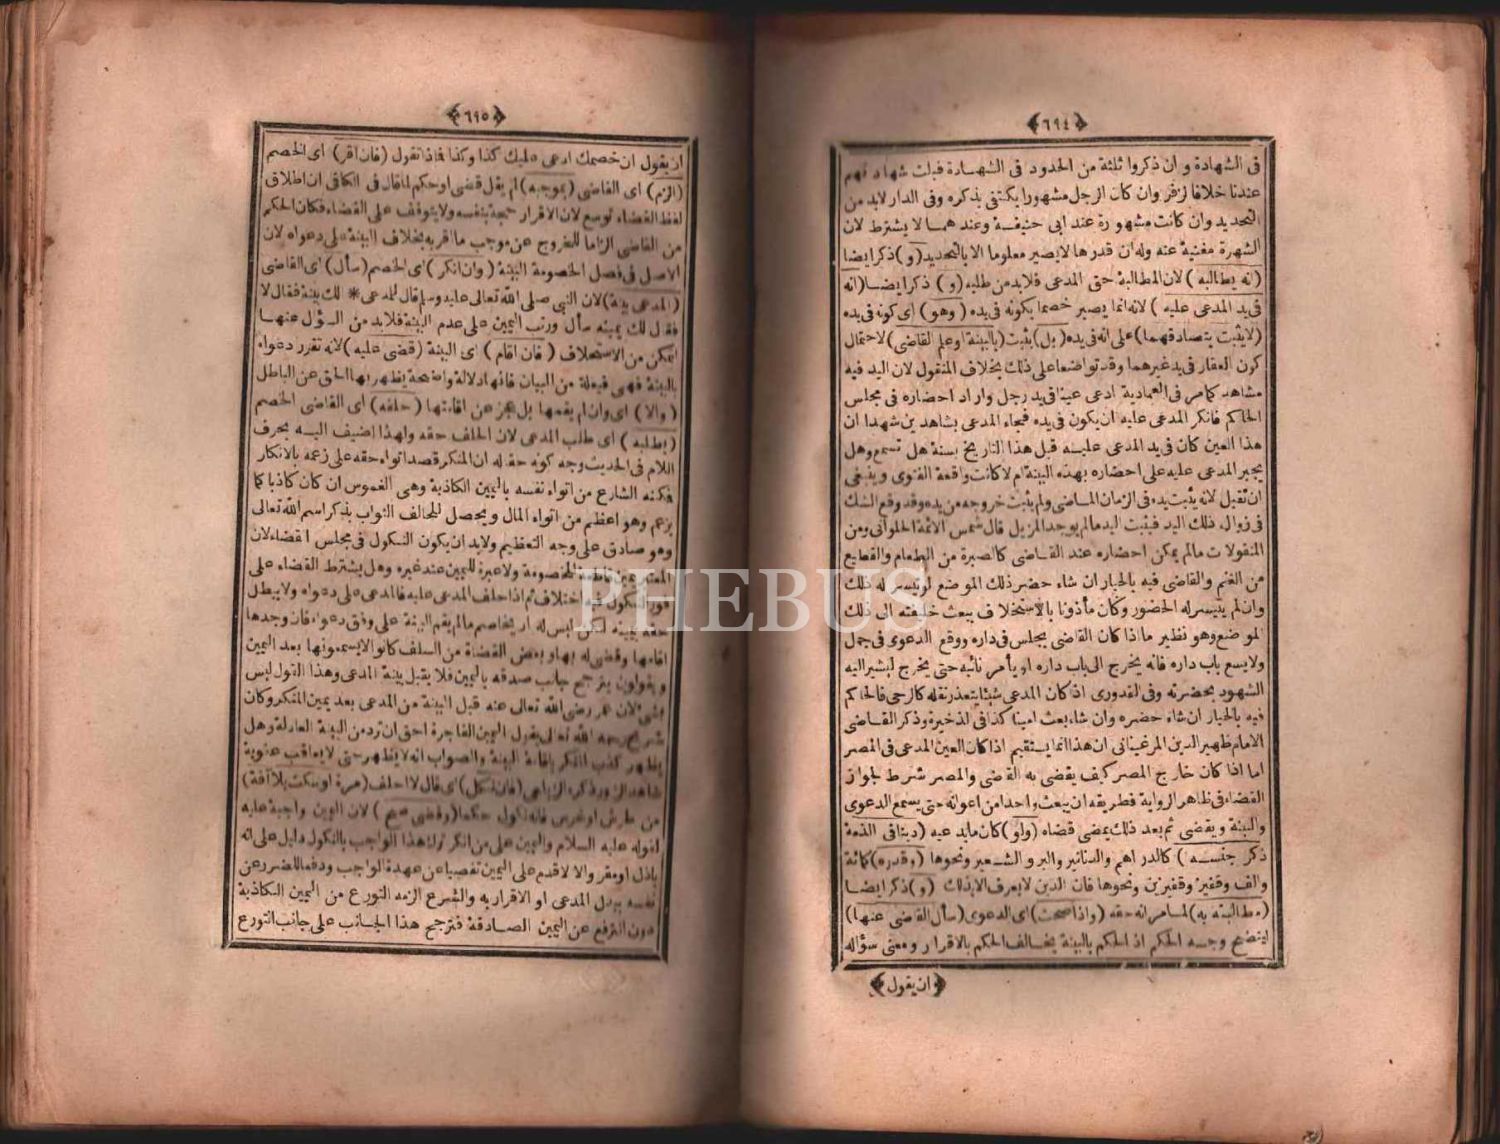 ﴿٦٩٤﴾
فى الشهادة وان ذكروا ثلثة من الحدود فى الشهادة قبلت شهادتهم
عندنا خلافا لزفر وان كان الرجل مشهورا يكتفى بذكره وفى الدار لابد من
التحديد وان كانت مشهورة عند ابى حنيفة وعندهما لا يشترط لان
الشهرة مغنية عنه وله ان قدرها لا يصير معلوما الا بالتحديد (و) ذكر ايضا
(انه يطالبه) لان المطالبة حق المدعى فلابد من طلبه (و) ذكر ايضا (انه
فى يد المدعى عليه) لانه انما يصير خصما بكونه فى يده (وهو) اى كونه فى يده
(لا يثبت بتصادقهما) على انه فى يده (بل) يثبت (بالبينة او علم القاضى) لاحتمال
كون العقار فى يد غيرهما وقد تواضعا على ذلك بخلاف المنقول لان اليد فيه
مشاهد كما مر فى العمادية ادعى عينا فى يد رجل واراد احضاره فى مجلس
الحاكم فانكر المدعى عليه ان يكون فى يده فجاء المدعى بشاهدين شهدا ان
هذا العين كان فى يد المدعى عليه قبل هذا التاريخ بسنة هل تسمع وهل
يجبر المدعى عليه على احضاره بهذه البينة ام لا كانت واقعة الفتوى وينبغى
ان تقبل لانه يثبت يده فى الزمان الماضى ولم يثبت خروجه من يده وقد وقع الشك
فى زوال ذلك اليد فيثبت اليد مالم يوجد المزيل قال شمس الائمة الحلوانى ومن
المنقولات مالم يمكن احضاره عند القاضى كالصبرة من الطعام والقطيع
من الغنم والقاضى فيه بالخيار ان شاء حضر ذلك الموضع لو تيسر له ذلك
وان لم يتيسر له الحضور وكان مأذونا بالاستخلاف يبعث خليفته الى ذلك
الموضع وهو نظير ما اذا كان القاضى يجلس فى داره ووقع الدعوى فى جمل
ولا يسع باب داره فانه يخرج الى باب داره او يأمر نائبه حتى يخرج ليشير اليه
الشهود بحضرته وفى القدورى اذا كان المدعى شيئا يتعذر نقله كالرحى فالحاكم
فيه بالخيار ان شاء حضره وان شاء بعث امينا كذا فى الذخيرة وذكر القاضى
الامام ظهير الدين المرغينانى ان هذا انما يستقيم اذا كان العين المدعى فى المصر
اما اذا كان خارج المصر كيف يقضى به القاضى والمصر شرط لجواز
القضاء فى ظاهر الرواية فطريقه ان يبعث واحدا من اعوانه حتى يسمع الدعوى
والبينة ويقضى ثم بعد ذلك يمضى قضاه (ولو) كان ما يدعيه (دينا فى الذمة
ذكر جنسه) كالدراهم والدنانير والبر والشعير ونحوها (وقدره) كمائة
والف وقفيز وقفيزين ونحوها فان الدين لا يعرف الا بذلك (و) ذكر ايضا
(مطالبته به) لما مر انه حقه (واذا صحت) اى الدعوى (سأل القاضى عنها)
ليتضح وجه الحكم اذ الحكم بالبينة يخالف الحكم بالاقرار ومعنى سؤاله
﴿ان يقول﴾
﴿٦٩٥﴾
ان يقول ان خصمك ادعى عليك كذا وكذا فماذا تقول (فان اقر) اى الخصم
(الزم) اى القاضى (بموجبه) لم يقل قضى او حكم لما قال فى الكافى ان اطلاق
لفظ القضاء توسع لان الاقرار حجة بنفسه ولا يتوقف على القضاء فكان الحكم
من القاضى الزاما للخروج عن موجب ما اقر به بخلاف البينة على دعواه لان
الاصل فى فصل الخصومة البينة (وان انكر) اى الخصم (سأل) اى القاضى
(المدعى بينة) لان النبى صلى الله تعالى عليه وسلم قال للمدعى * لك بينة فقال لا
فقال لك يمينه سأل ورتب اليمين على عدم البينة فلابد من السؤال عنها
ليمكن من الاستحلاف (فان اقام) اى البينة (قضى عليه) لانه تقرر دعواه
بالبينة فهى فيعلة من البيان فانها دلالة واضحة يظهر بها الحق عن الباطل
(والا) اى وان لم يقمها بل عجز عن اقامتها (حلفه) اى القاضى الخصم
(بطلبه) اى طلب المدعى لان الحلف حقه ولهذا اضيف اليه بحرف
اللام فى الحديث وجه كونه حقا له ان المنكر قصد اتواء حقه على زعمه بالانكار
فمكنه الشارع من اتواء نفسه باليمين الكاذبة وهى الغموس ان كان كاذبا كما
يزعم وهو اعظم من اتواء المال ويحصل للحالف الثواب بذكر اسم الله تعالى
وهو صادق على وجه التعظيم ولابد ان يكون النكول فى مجلس القضاء لان
المعتبر يمين قاطعة للخصومة ولا عبرة لليمين عند غيره وهل يشترط القضاء على
فور النكول فيه اختلاف ثم اذا حلف المدعى عليه فالمدعى على دعواه ولا يبطل
حقه بيمينه لكن ليس له ان يخاصم مالم يقم البينة على وفق دعواه فان وجدها
اقامها وقضى له بها وبعض القضاة من السلف كانوا لا يسمعونها بعد اليمين
ويقولون يترجح جانب صدقه باليمين فلا يقبل بينة المدعى وهذا القول ليس
بشئ لان عمر رضى الله تعالى عنه قبل البينة من المدعى بعد يمين المنكر وكان
شريح رحمه الله تعالى يقول اليمين الفاجرة احق ان ترد من البينة العادلة وهل
يظهر كذب المنكر باقامة البينة والصواب انه لا يظهر حتى لا يعاقب عقوبة
شاهد الزور ذكره الزيلعى (فان نكل) اى قال لا احلف (مرة او سكت بلا آفة)
من طرش او خرس فانه نكول حكما (وقضى صح) لان اليمين واجبة عليه
لقوله عليه السلام واليمين على من انكر ترك هذا الواجب بالنكول دليل على انه
باذل او مقر والا لاقدم على اليمين تفصيا عن عهدة الواجب ودفعا للضرر عن
نفسه ببذل المدعى او الاقرار به والشرع الزمه التورع من اليمين الكاذبة
دون الترفع عن اليمين الصادقة فترجح هذا الجانب على جانب التورع
PHEBUS